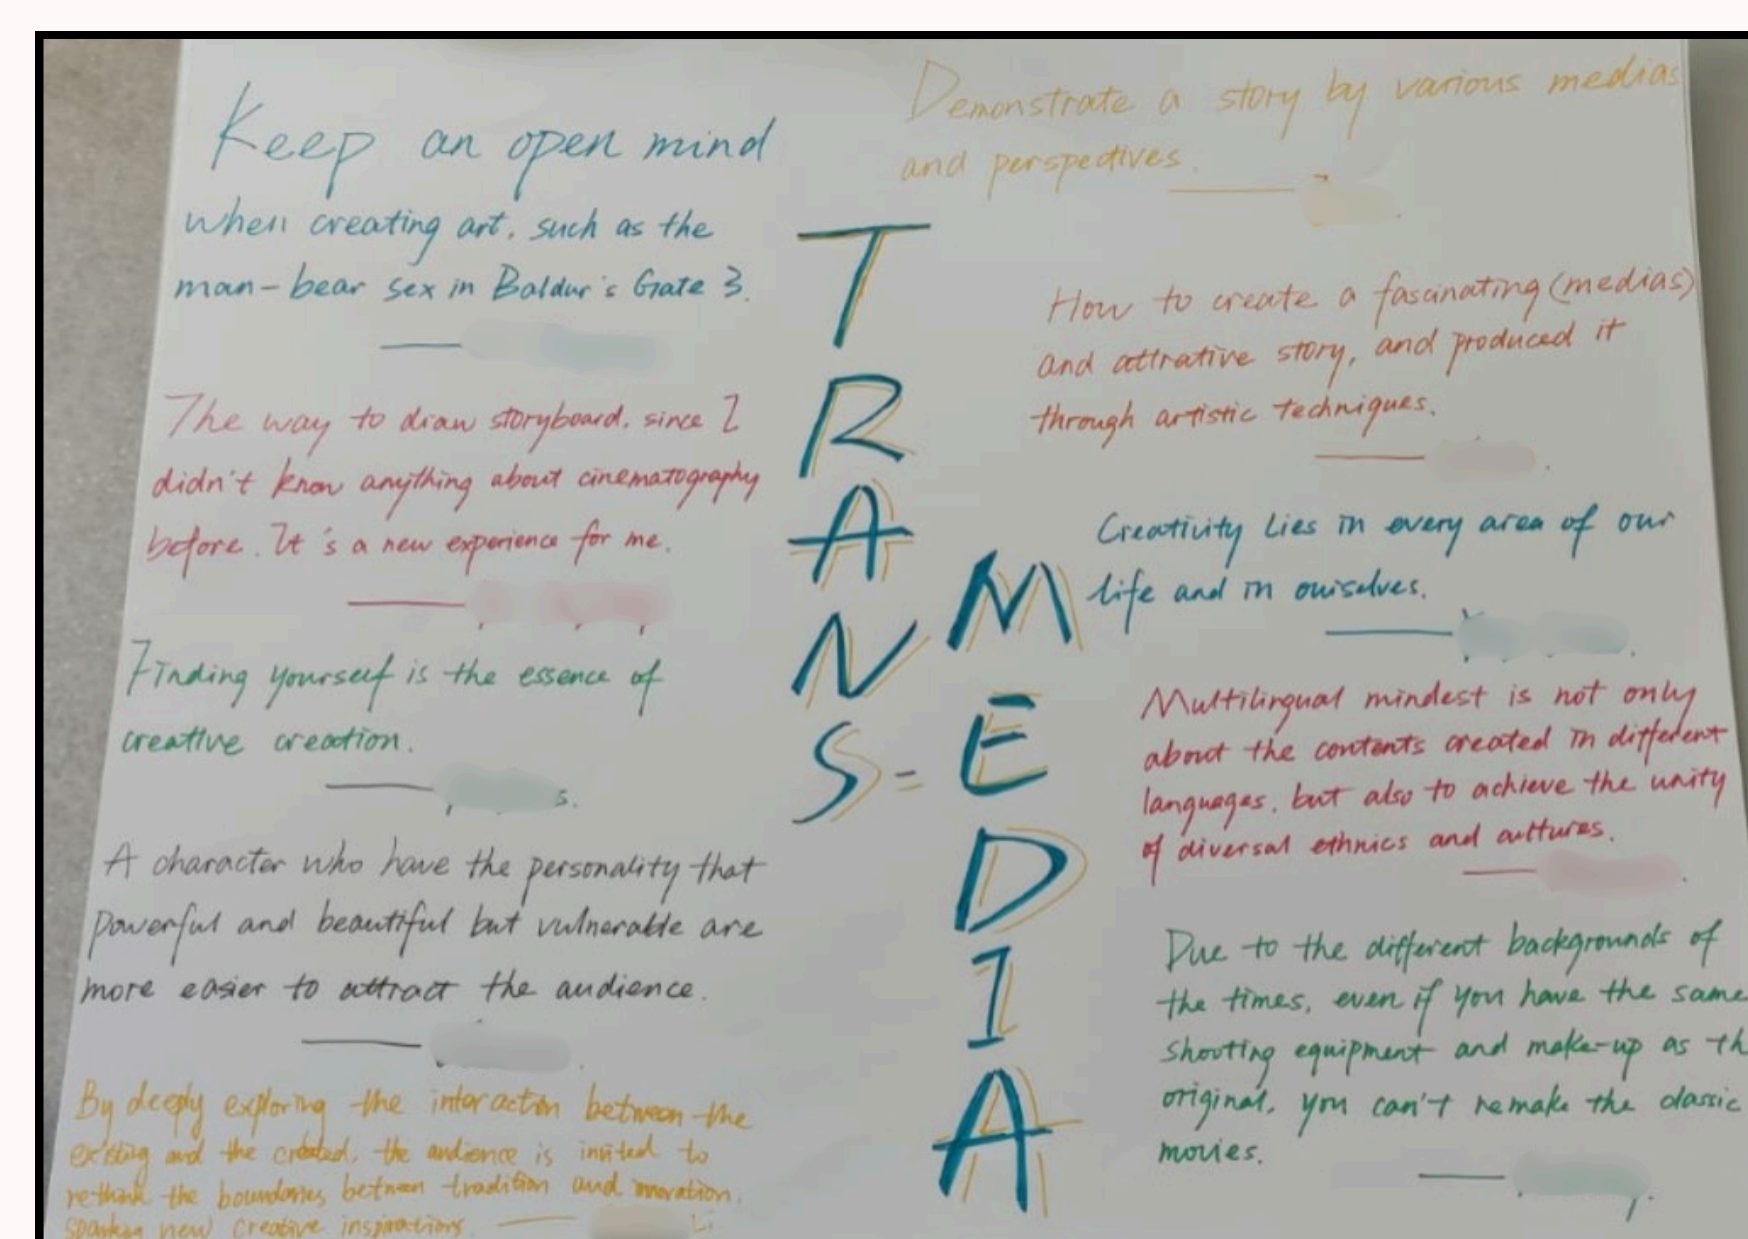 Keep an open mind
when creating art, such as the
man-bear sex in Baldur's Gate 3.
The way to draw storyboard, since I
didn't know anything about cinematography
before. It's a new experience for me.
Finding yourself is the essence of
creative creation.
s.
A character who have the personality that
powerful and beautiful but vulnerable are
more easier to attract the audience.
By deeply exploring the interaction between the
existing and the created, the audience is invited to
rethink the boundaries between tradition and
new creative inspirations. Li
TRANS-
MEDIA
Demonstrate a story by various medias
and perspectives.
How to create a fascinating (medias)
and attrative story, and produced it
through artistic techniques.
Creativity Lies in every area of our
life and in ourselves.
Multilingual mindest is not only
about the contents created in different
languages, but also to achieve the unity
of diversal ethnics and cultures.
Due to the different backgrounds of
the times, even if you have the same
shooting equipment and make-up as th
original, you can't remake the classic
movies.